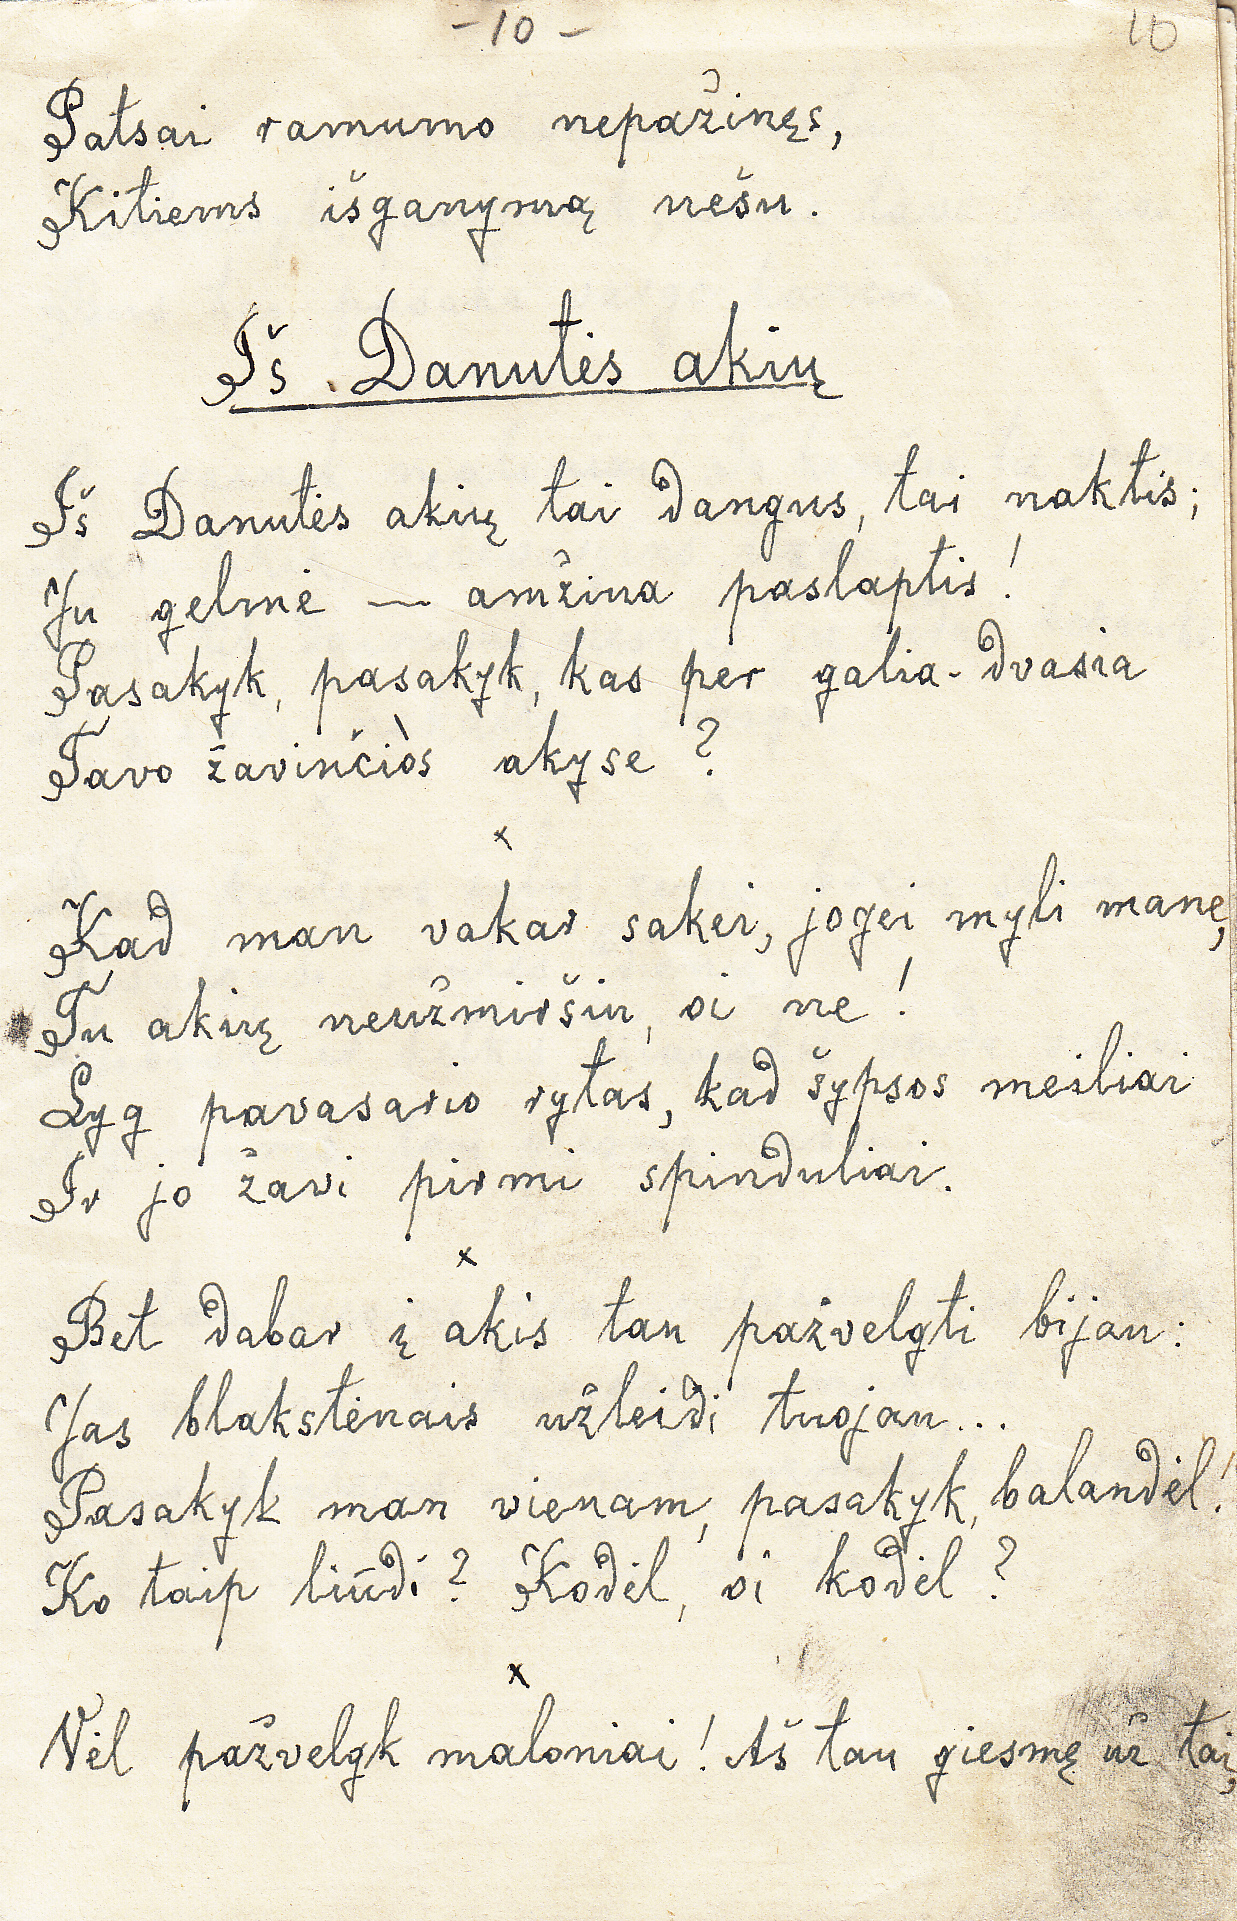 - 10 -
10
Patsai ramumo nepažinęs,
Kitiems išganymą nešu.
Iš Danutės akių
Iš Danutės akių tai dangus, tai naktis;
Ju gelmė — amžina paslaptis!
Pasakyk, pasakyk, kas per galia-dvasia
Tavo žavinčiòs akyse?
x
Kad man vakar sakei, jogei myli manę,
Tu akių neužmiršiu, oi ne!
Lyg pavasario rytas, kad šypsos meiliai
Ir jo žavi pirmi spinduliai.
x
Bet dabar į akis tau pažvelgti bijau:
Jas blakstėnais užleidi tuojau...
Pasakyk man vienam, pasakyk, balandėl!
Ko taip liūdi? Kodėl, oi kodėl?
x
Vėl pažvelgk maloniai! Aš tau giesmę už tai,